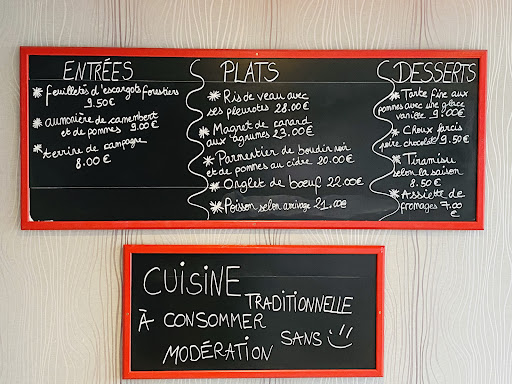 ENTRÉES
* feuilletés d'escargots forestiers
9.50€
* aumonière de camembert
et de pommes 9.00€
* terrine de campagne
8.00€
PLATS
* Ris de veau avec
ses pleurotes 28.00€
* Magret de canard
aux agrumes 23.00€
* Parmentier de boudin noir
et de pommes au cidre 20.00€
* Onglet de boeuf 22.00€
* Poisson selon arrivage 21.00€
DESSERTS
* Tarte fine aux
pommes avec une glace
vanille 9.00€
* Choux farcis
poire chocolat 9.50€
* Tiramisu
selon la saison
8.50€
* Assiette de
fromages 7.00
€
CUISINE
TRADITIONNELLE
À CONSOMMER
SANS
MODÉRATION